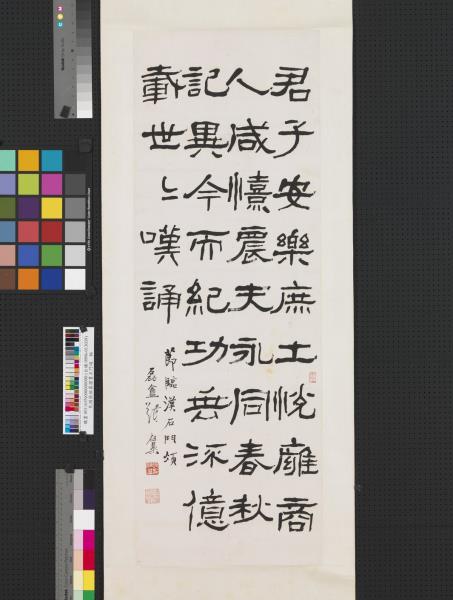 君子安樂庶士悅雍商
人咸憘農夫永同春秋
記異今而紀功垂流億
載世〻嘆誦
節臨漢石門頌
磊盦張祖翼